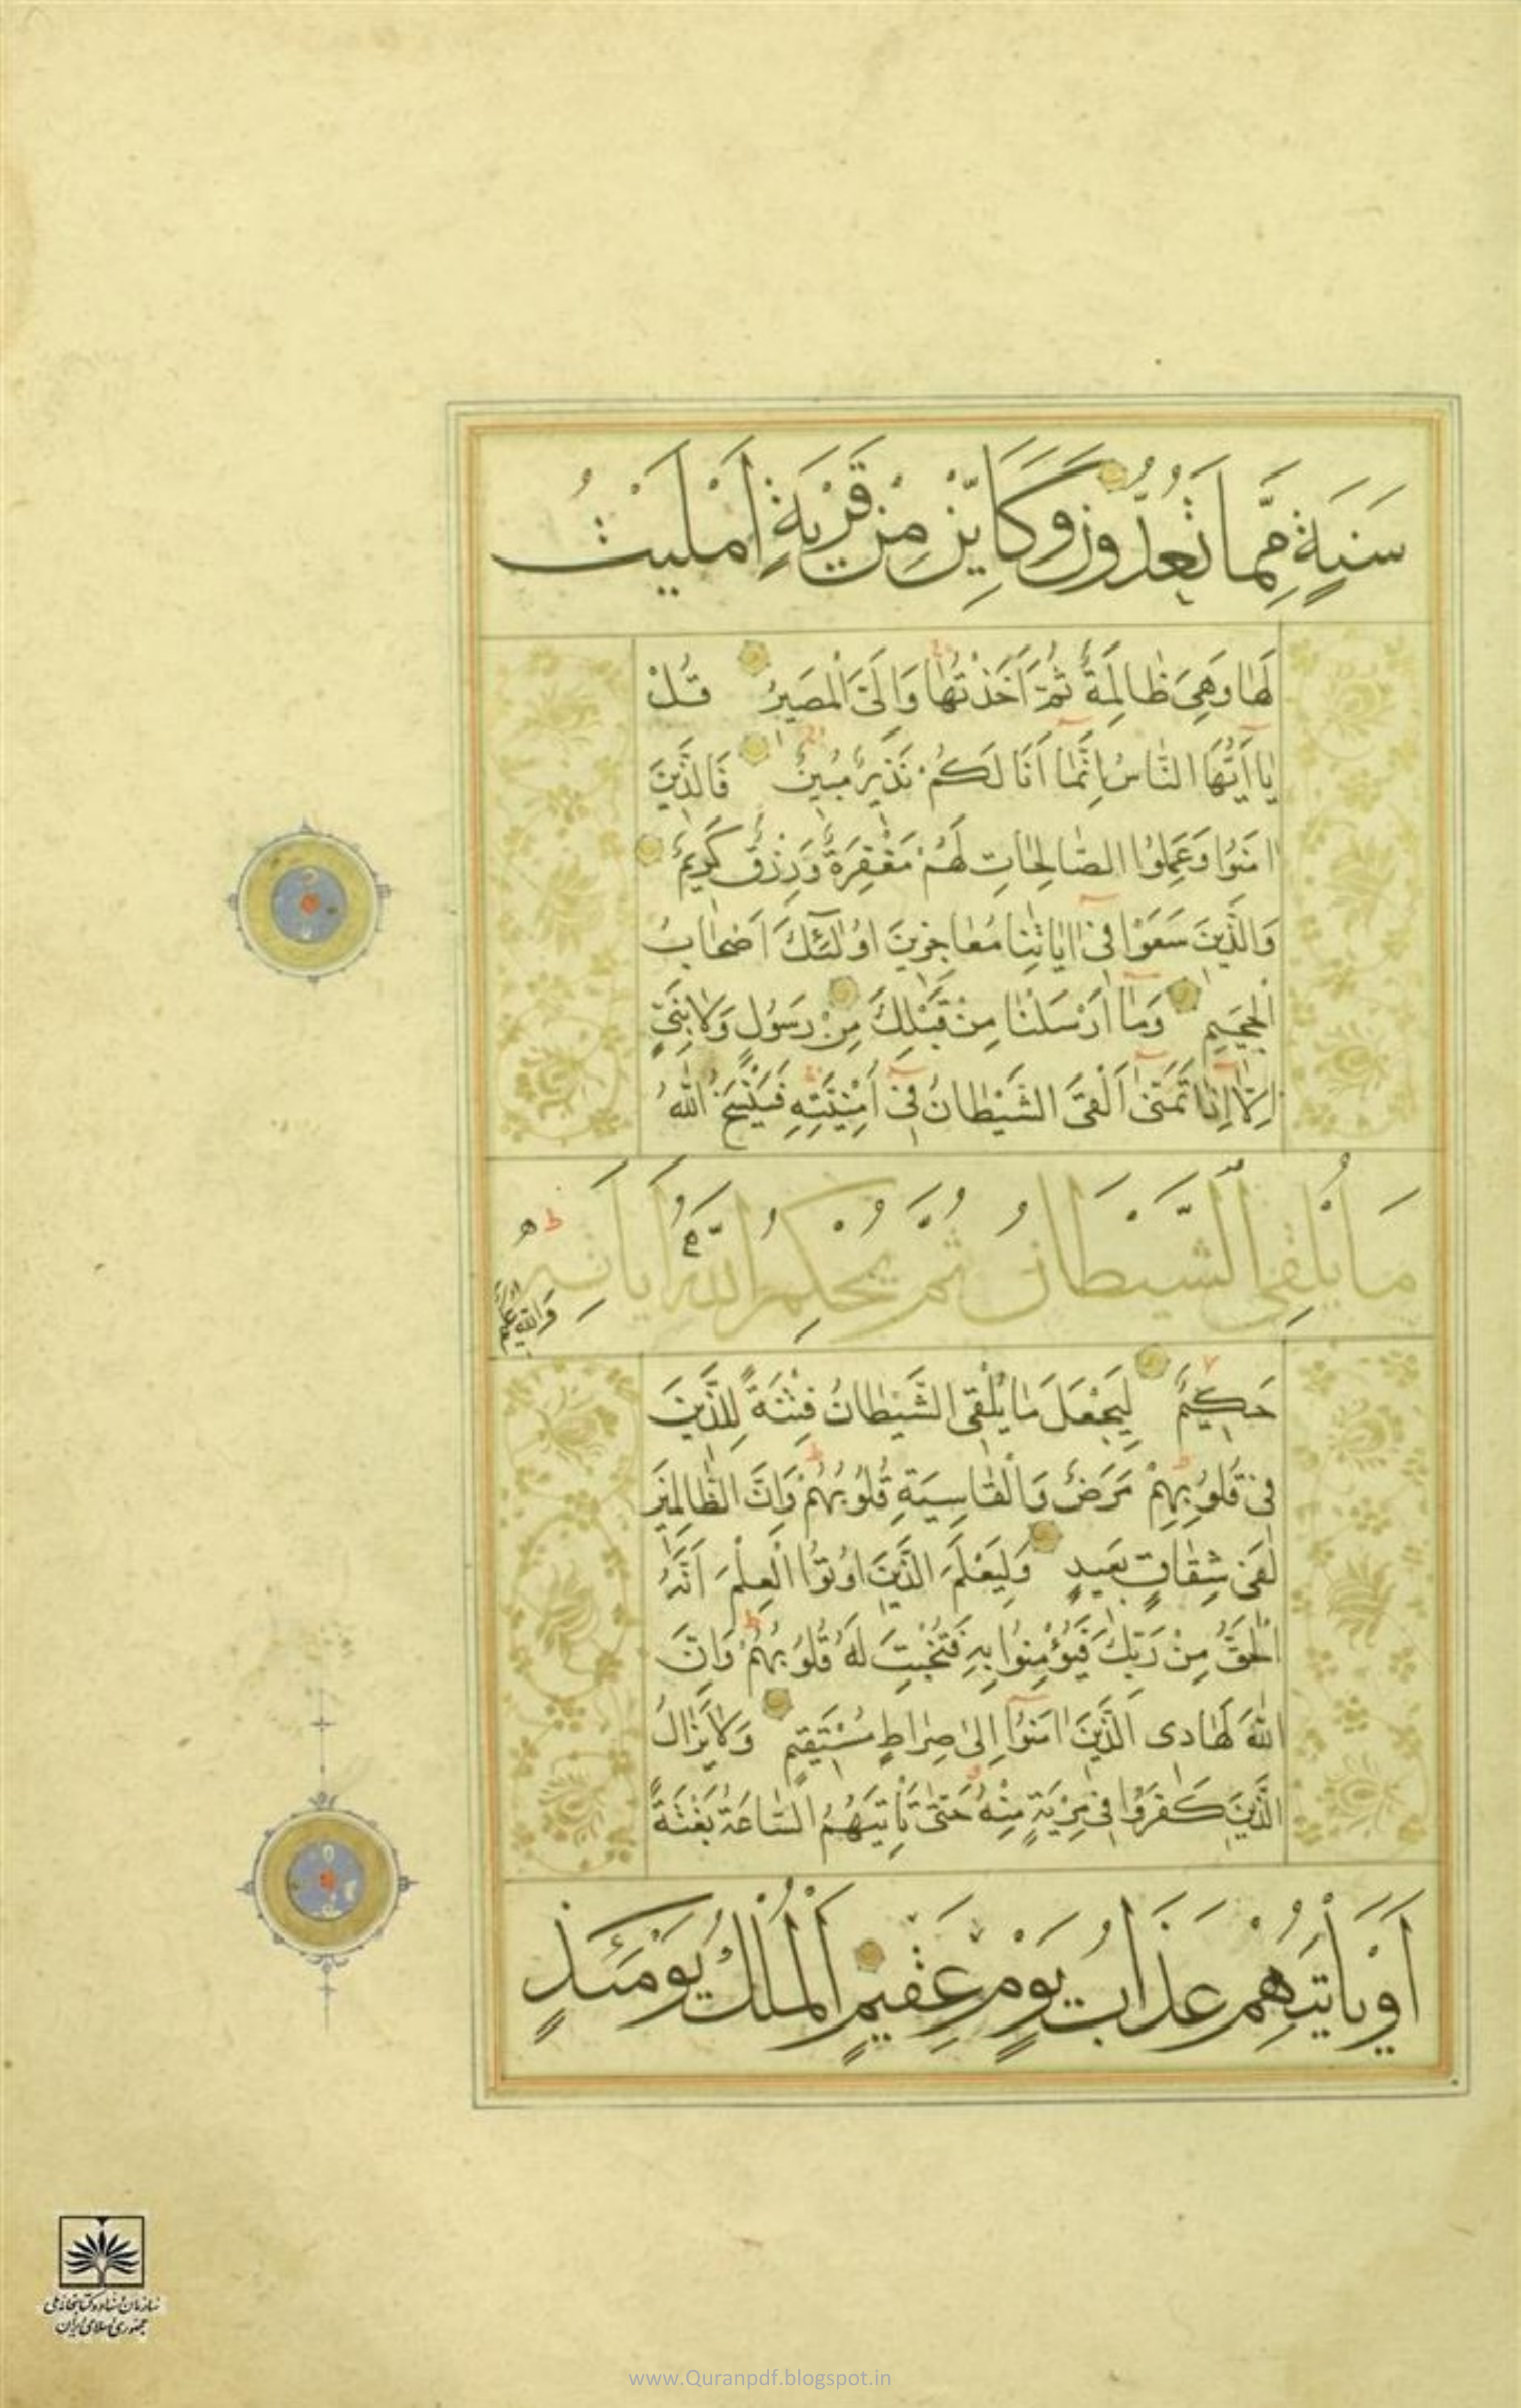 سَنَةٍ مِمَّا تَعُدُّونَ وَكَأَيِّنْ مِنْ قَرْيَةٍ اَمْلَيْتُ
لَهَا وَهِيَ ظَالِمَةٌ ثُمَّ اَخَذْتُهَا وَاِلَيَّ الْمَصِيرُ قُلْ
يَا اَيُّهَا النَّاسُ اِنَّمَا اَنَا لَكُمْ نَذِيرٌ مُبِينٌ فَالَّذِينَ
اٰمَنُوا وَعَمِلُوا الصَّالِحَاتِ لَهُمْ مَغْفِرَةٌ وَرِزْقٌ كَرِيمٌ
وَالَّذِينَ سَعَوْا فِي اٰيَاتِنَا مُعَاجِزِينَ اُولٰئِكَ اَصْحَابُ
الْجَحِيمِ وَمَا اَرْسَلْنَا مِنْ قَبْلِكَ مِنْ رَسُولٍ وَلَا نَبِيٍّ
اِلَّا اِذَا تَمَنَّى اَلْقَى الشَّيْطَانُ فِي اُمْنِيَّتِهِ فَيَنْسَخُ اللّٰهُ
مَا يُلْقِي الشَّيْطَانُ ثُمَّ يُحْكِمُ اللّٰهُ اٰيَاتِهِ
وَاللّٰهُ عَلِيمٌ
حَكِيمٌ لِيَجْعَلَ مَا يُلْقِي الشَّيْطَانُ فِتْنَةً لِلَّذِينَ
فِي قُلُوبِهِمْ مَرَضٌ وَالْقَاسِيَةِ قُلُوبُهُمْ وَاِنَّ الظَّالِمِينَ
لَفِي شِقَاقٍ بَعِيدٍ وَلِيَعْلَمَ الَّذِينَ اُوتُوا الْعِلْمَ اَنَّهُ
الْحَقُّ مِنْ رَبِّكَ فَيُؤْمِنُوا بِهِ فَتُخْبِتَ لَهُ قُلُوبُهُمْ وَاِنَّ
اللّٰهَ لَهَادِي الَّذِينَ اٰمَنُوا اِلَى صِرَاطٍ مُسْتَقِيمٍ وَلَا يَزَالُ
الَّذِينَ كَفَرُوا فِي مِرْيَةٍ مِنْهُ حَتَّى تَأْتِيَهُمُ السَّاعَةُ بَغْتَةً
اَوْ يَأْتِيَهُمْ عَذَابُ يَوْمٍ عَقِيمٍ اَلْمُلْكُ يَوْمَئِذٍ
سازمان اسناد و کتابخانه ملی
جمهوری اسلامی ایران
www.Quranpdf.blogspot.in